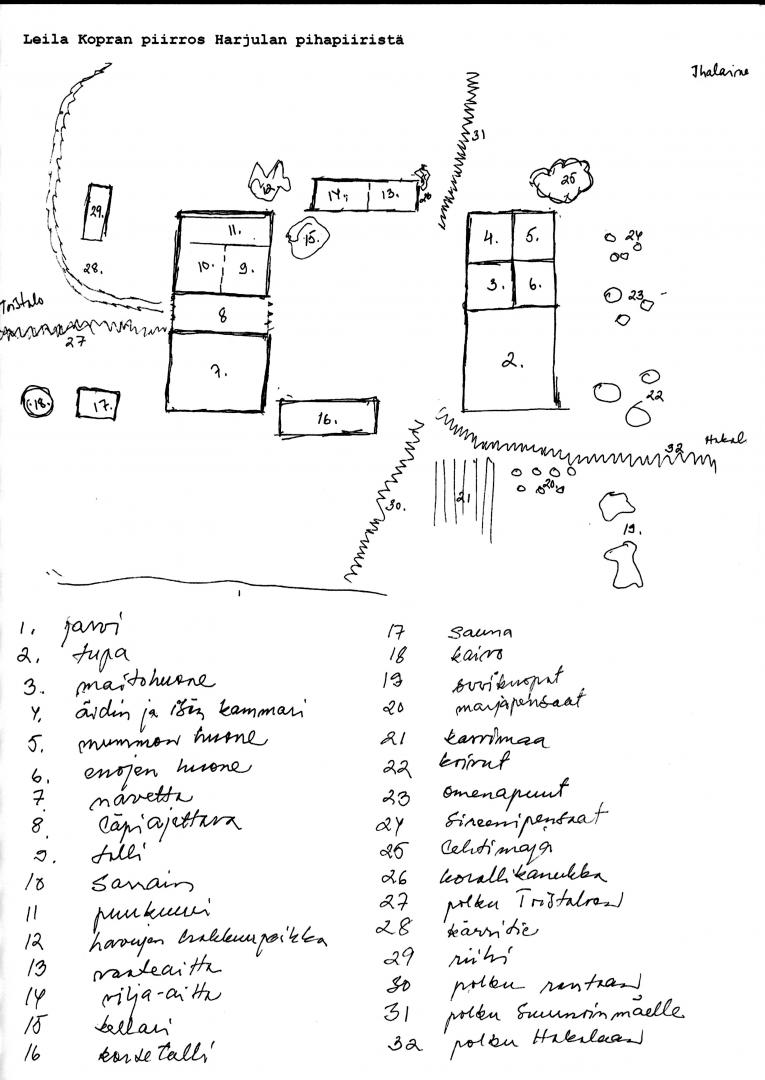 Leila Kopran piirros Harjulan pihapiiristä
Ihalaine
31
12
14.
13.
26
25
29.
11.
15.
4.
5.
24
10.
9.
3.
6.
23
28.
8
Tristalo
27
7.
2.
22
18.
17.
16.
Hakal
32
30.
21
20.
19.
1
1. järvi
2. tupa
3. maitohuone
4. äidin ja isän kammari
5. mummon huone
6. enojen huone
7 navetta
8 läpiajettava
9. talli
10 Sarrain
11 puukuuri
12 havujen hakkuupaikka
13 vaateaitta
14 vilja-aitta
15 kellari
16 konetalli
17 sauna
18 kaivo
19
20 marjapensaat
21 kasvimaa
22 koivut
23 omenapuut
24 Sireenipensaat
25 Lehtimaja
26 korallikanukka
27 polku Tristaloon
28 kärritie
29 riihi
30 polku rantaan
31 polku Suunsinmäelle
32 polku Hakalaan